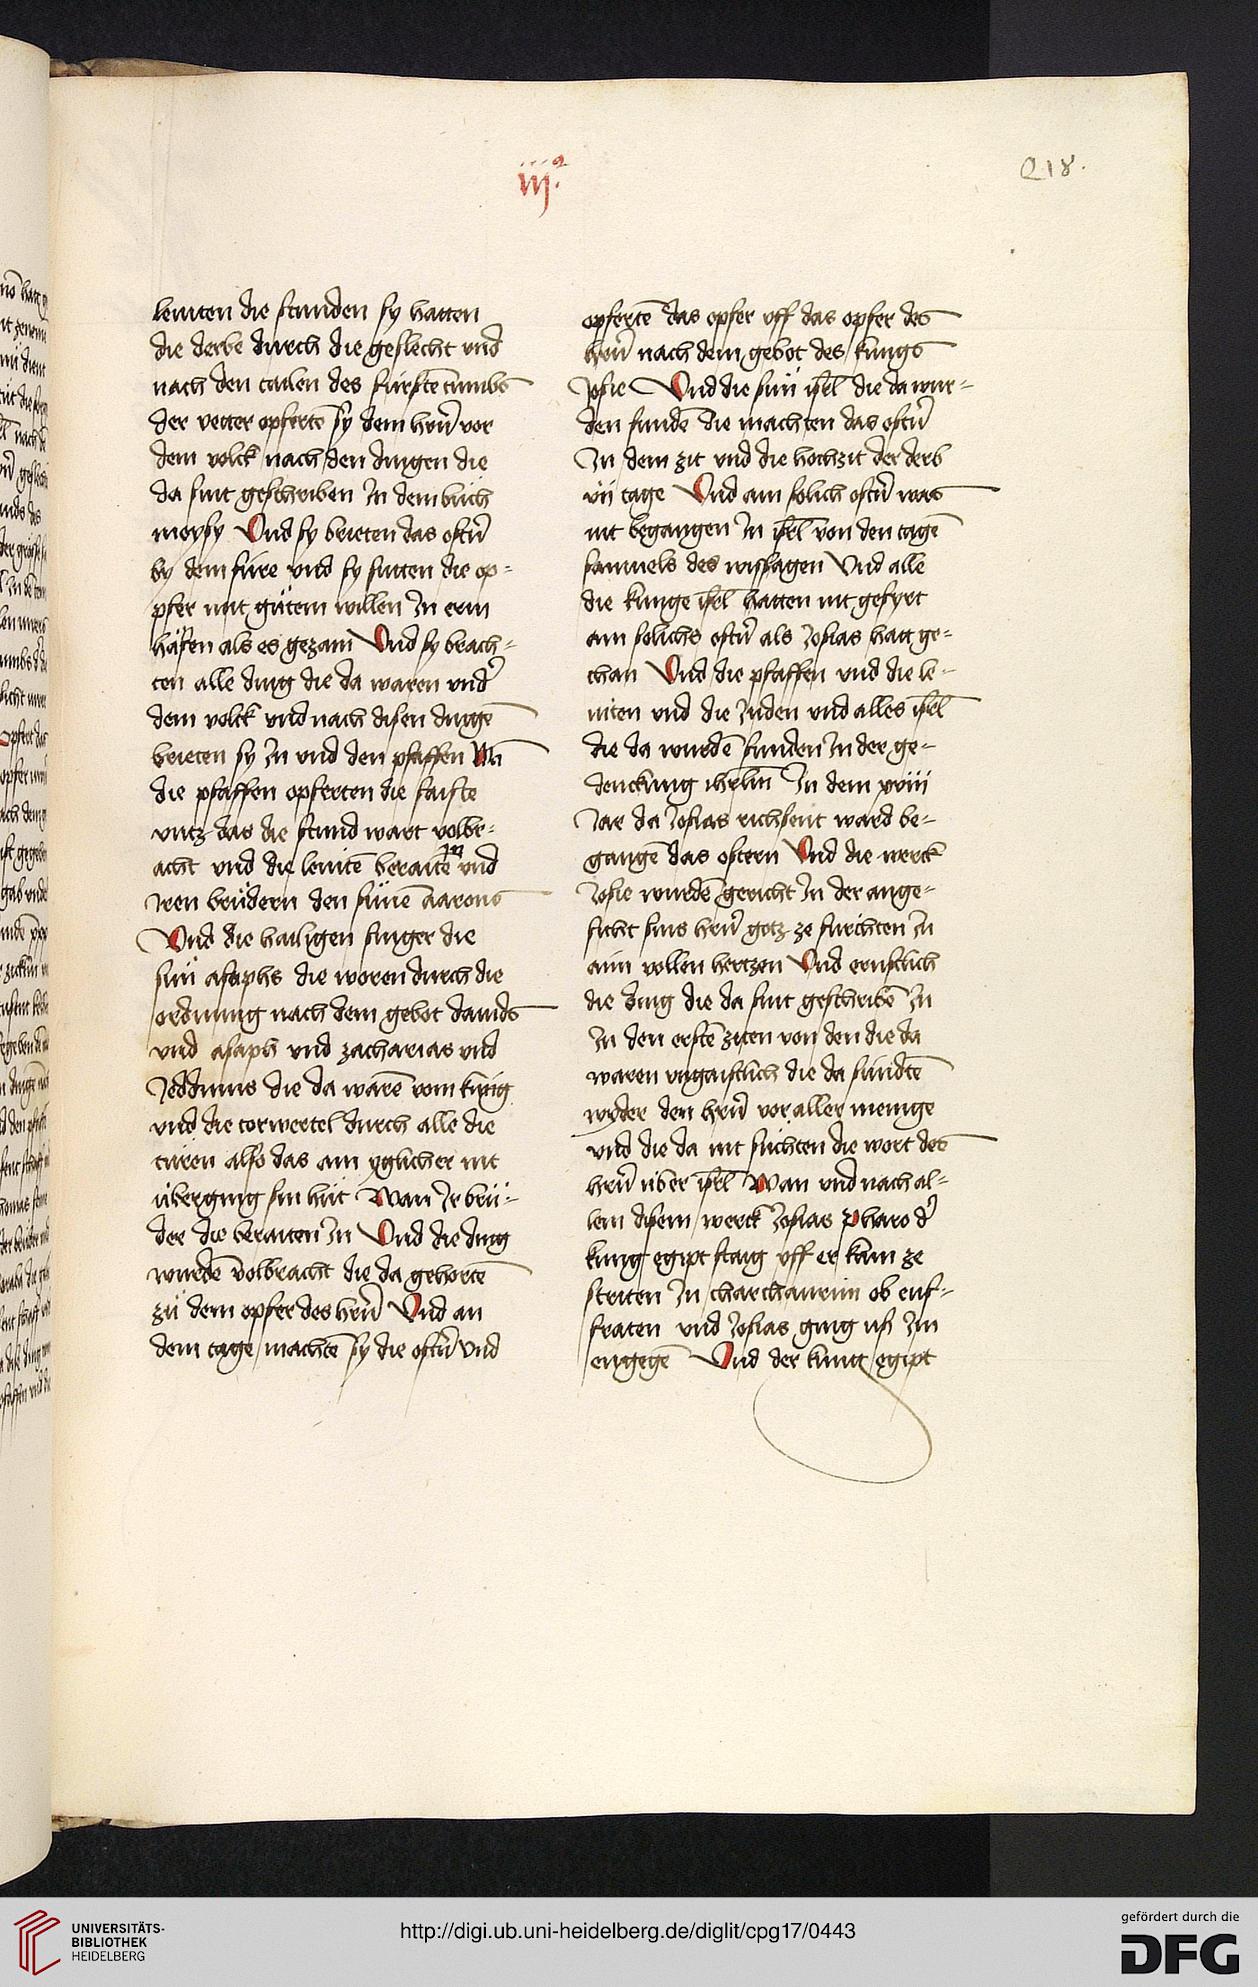 iij.°
218.
leuiten die stunden sy hatten
die derbe durch die geslecht vnd
nach den tailen des fürstētumbs
der vetter opfertē sy dem hern̄ vor
dem volck nach den dingen die
da sint geschriben Jn dem bůch
moysy Vnd sy brieten das ostn̄
by dem füre vnd sy sutten die op-
pfer mit gůtem willen Jn erin
häfen als es gezam Vnd sy brach-
ten alle ding die da waren vndˀ
dem volck vnd nach disen dingē
brieten sy Jn vnd den pfaffen Wā
die pfaffen opferten die faiste
vntz das die stund wart volbr-
acht vnd die leuitē beraitē Jn vnd
Jren brůdern den sünē aarons
Vnd die hailigen singer die
sün asaphs die woren durch die
ordnung nach dem gebot dauids
vnd asaph vnd zacharias vnd
Jeddimus die da warē vom küng
vnd die torwertel durch alle die
türen also das ain yglicher nit
überging sin hůt Wan Jr brü-
der die beraiten Jn Vnd die ding
wurdē volbracht die da gehortē
zů dem opfer des hern̄ Vnd an
dem tage machtē sy die ostn̄ vnd
opfertē das opfer vff das opfer des
hern̄ nach dem gebot des kungs
Josie Vnd die sün isrl̄ die da wur-
den fundē die machten das ostn̄
Jn dem zit vnd die hochzit der derb
vij tage Vnd ain solich ostn̄ was
nit begangen Jn isrl̄ von den tagē
samuels des wissagen Vnd alle
die kunge isrl̄ hatten nit gefyrt
ain solichs ostn̄ als Josias hatt ge-
than Vnd die pfaffen vnd die le-
uiten vnd die Juden vnd alles isrl̄
die da wurdē funden Jn der ge-
denckung ihrl̄m Jn dem xviij
Jar da Josias richsent ward be-
gangē das ostern Vnd die werck
Josie wurdē gericht Jn der ange-
sicht sins hern̄ gotz ze furchten Jn
aim vollen hertzen Vnd ernstlich
die ding die da sint geschribē Jn
Jn den erstē ziten von den die da
waren vngaistlich die da sündtē
wyder den hern̄ vor aller menige
vnd die da nit sůchten die wort des
hern̄ über isrl̄ Wan vnd nach al-
lem disem werck Josias pharo dˀ
kung egipt staig vff er kam ze
striten Jn charchamim ob euf-
fraten vnd Josias ging uß Jm
engegē Vnd der kung egipt
UNIVERSITÄTS-
BIBLIOTHEK
HEIDELBERG
http://digi.ub.uni-heidelberg.de/diglit/cpg17/0443
gefördert durch die
DFG